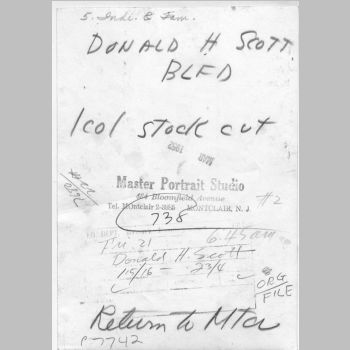 5. Indl. & Fam.
DONALD H SCOTT
BLFD
1 col stock cut
Master Portrait Studio
484 Bloomfield Avenue
Tel. MOntclair 2-3855 MONTCLAIR, N. J.
#2
738
Fri. 21 6:45am
Donald H. Scott
115/16 - 23/4
ORG
FILE
Return to Mtcr
P7742